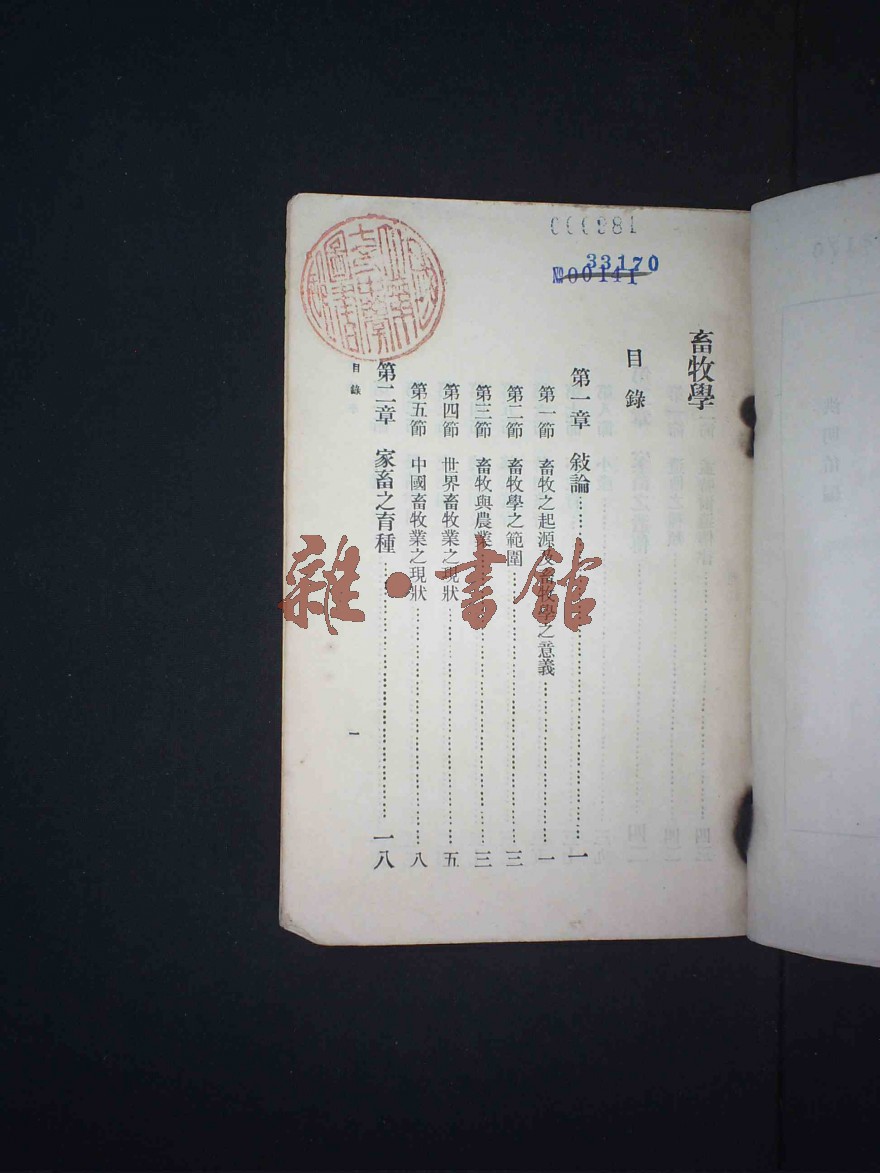 000981
33170
№00141
畜牧學
目錄
第一章 敍論……一
第一節 畜牧之起源及畜牧學之意義……一
第二節 畜牧學之範圍……三
第三節 畜牧與農業……三
第四節 世界畜牧業之現狀……五
第五節 中國畜牧業之現狀……八
第二章 家畜之育種……一八
目錄
一
雜·書館